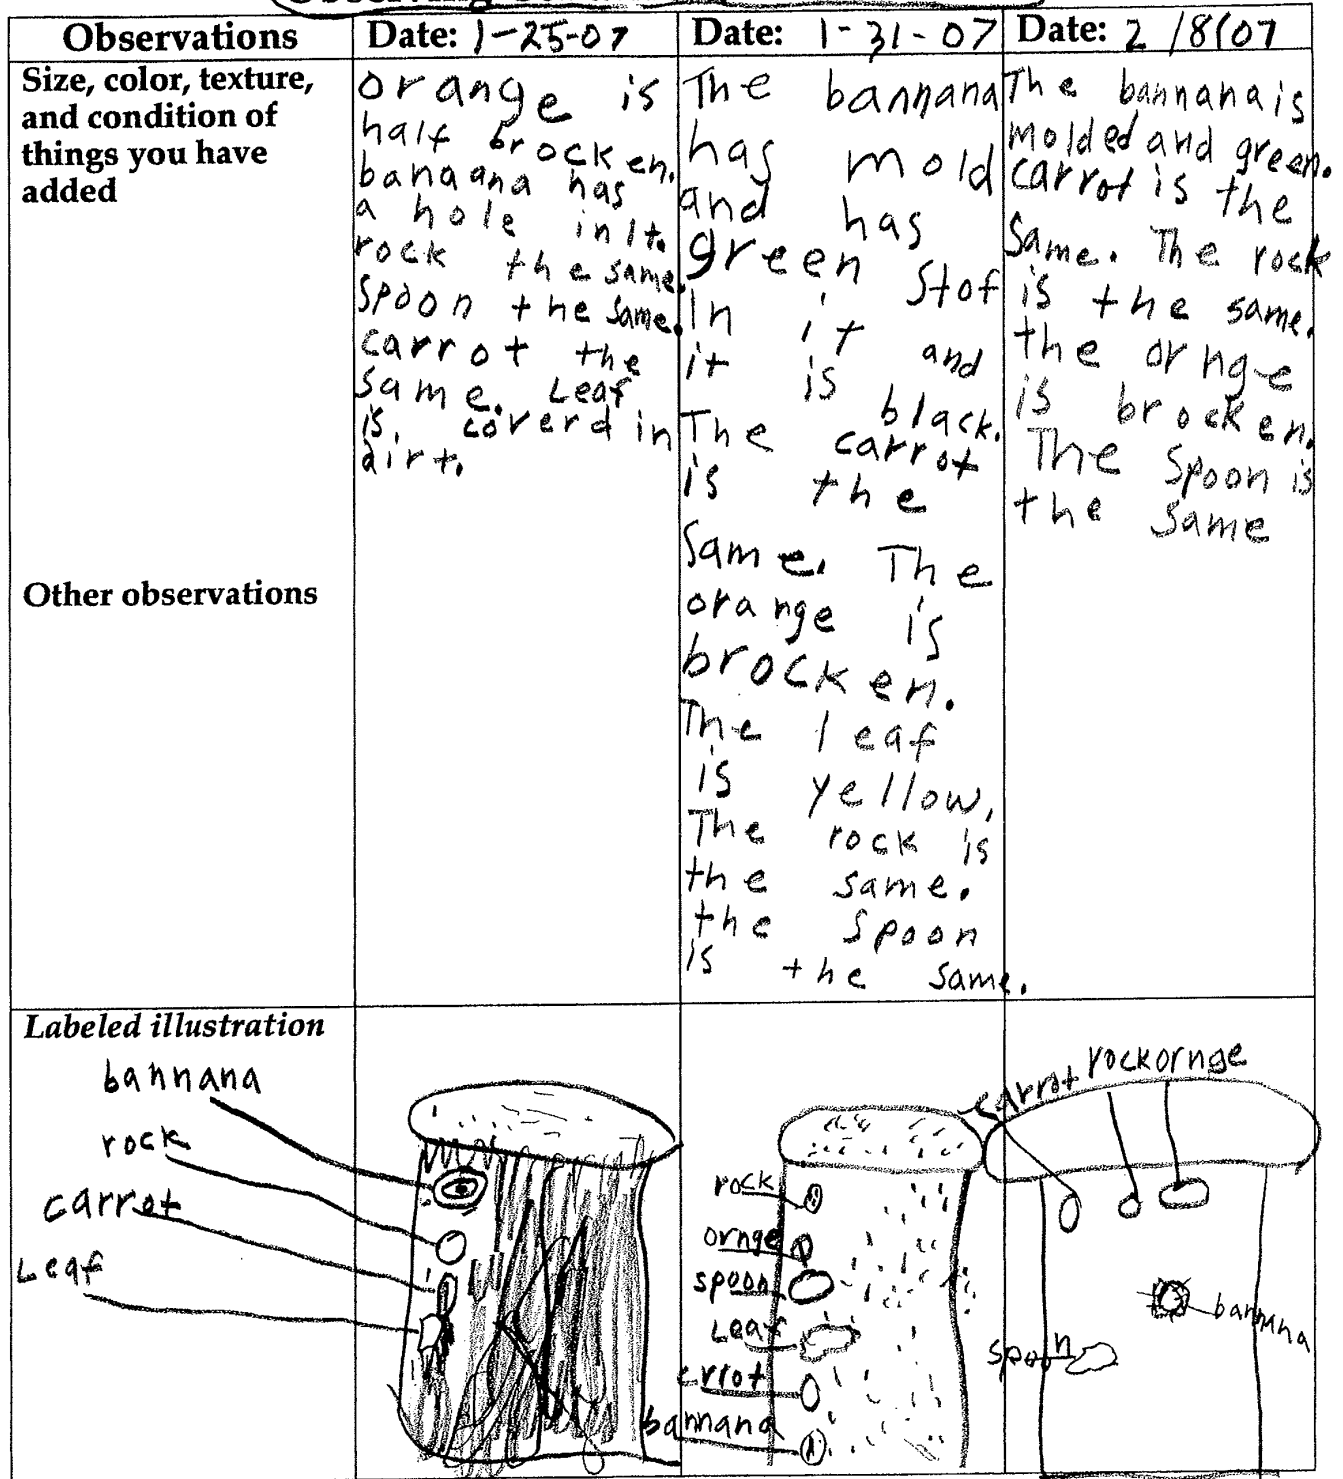 Observing
Observations
Date: 1-25-07
Date: 1-31-07
Date: 2/8/07
Size, color, texture,
and condition of
things you have
added
orange is
half brocken.
banaana has
a hole in it.
rock the same.
spoon the same.
carrot the
same. Leaf
is, coverd in
dirt.
The bannana
has mold
and has
green stof
In it and
it is black.
The carrot
is the
same. The
orange is
brocken.
The leaf
is yellow.
The rock is
the same.
the spoon
is the same.
The bannana is
molded and green.
carrot is the
same. The rock
is the same.
the ornge
is brocken.
The spoon is
the same
Other observations
Labeled illustration
bannana
rock
carrot
Leaf
rock
ornge
spoon
Leaf
crrot
bannana
carrot
rock
ornge
bannana
spoon